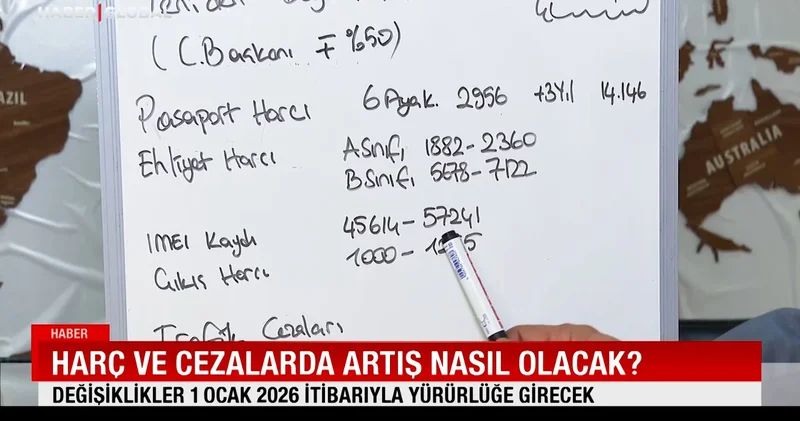 HABER GLOBAL
(C.Başkanı ∓ %50)
Pasaport Harcı 6 Ayak. 2956 +3Yıl 14.146
Ehliyet Harcı A Sınıfı 1882 - 2360
B Sınıfı 5678 - 7122
IMEI Kaydı 45614 - 57241
Çıkış Harcı 1000 -
Trafik Cezaları
AZIL
AUSTRALIA
HABER
HARÇ VE CEZALARDA ARTIŞ NASIL OLACAK?
DEĞİŞİKLİKLER 1 OCAK 2026 İTİBARIYLA YÜRÜRLÜĞE GİRECEK